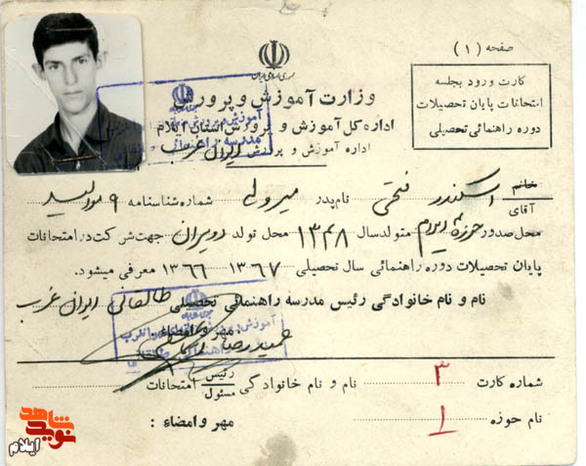 صفحه (۱)
کارت ورود بجلسه
امتحانات پایان تحصیلات
دوره راهنمائی تحصیلی
جمهوری اسلامی ایران
وزارت آموزش و پرورش
اداره کل آموزش و پرورش استان ایلام
اداره آموزش و پرورش
خانم
آقای اسکندر فتحی نام پدر میرولی شماره شناسنامه ۹
محل صدور حوزه ایلام متولد سال ۱۳۴۸ محل تولد دویران جهت شرکت در امتحانات
پایان تحصیلات دوره راهنمائی سال تحصیلی ۱۳۶۷ - ۱۳۶۶ معرفی میشود.
نام و نام خانوادگی رئیس مدرسه راهنمائی تحصیلی طالقانی ایوان غرب
مهر و امضاء
شماره کارت ۳ نام و نام خانوادگی رئیس مسئول امتحانات
نام حوزه ۱ مهر و امضاء :
شاهد
نوید
ایلام